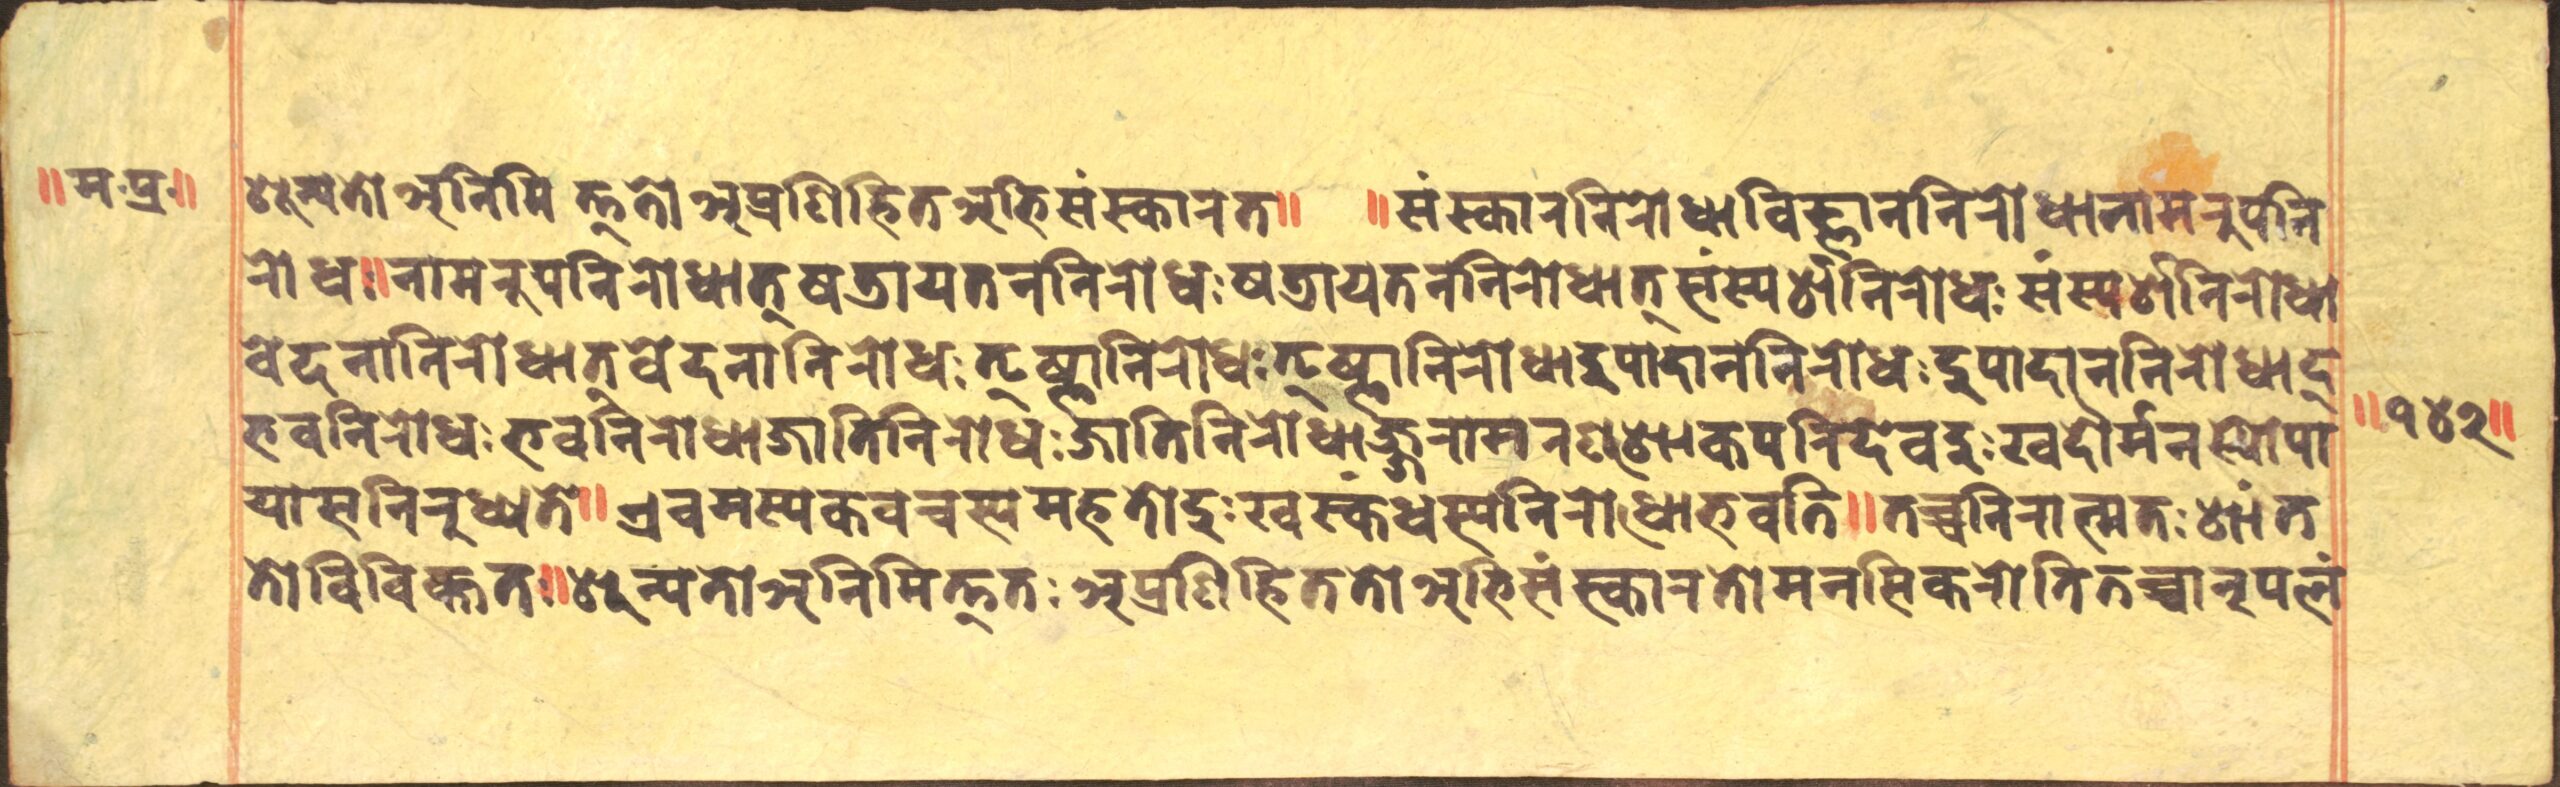 ॥म.प्र.॥
शून्यतो अनिमि त्ततो अप्रणिहित अभिसंस्कारत॥ ॥संस्कारनिरोधाविज्ञाननिरोधानामरुपनि
रोधः॥नामरुपनिरोधात्षडायतननिरोधःषडायतननिरोधात्संस्पर्शनिरोधःसंस्पर्शनिरोधा
वेदनानिरोधात्वेदनानिरोधःतृष्णानिरोधःतृष्णानिरोधादुपादाननिरोधःदुपादाननिरोधाद्
भवनिरोधःभवनिरोधाजातिनिरोधःर्जातिनिरोधार्ज्जरामरणशोकपरिदेवदुःखदौर्मनस्योपा
यासनिरुध्यते॥एवमस्यकेवलस्यमहतोदुःखस्कंधस्यनिरोधोभवति॥तच्चनिरात्मतःशांत
तोविविक्ततः॥शून्यतोअनिमित्ततःअप्रणिहिततोअभिसंस्कारतोमनसिकरोतितच्चानुपलं
॥१४२॥